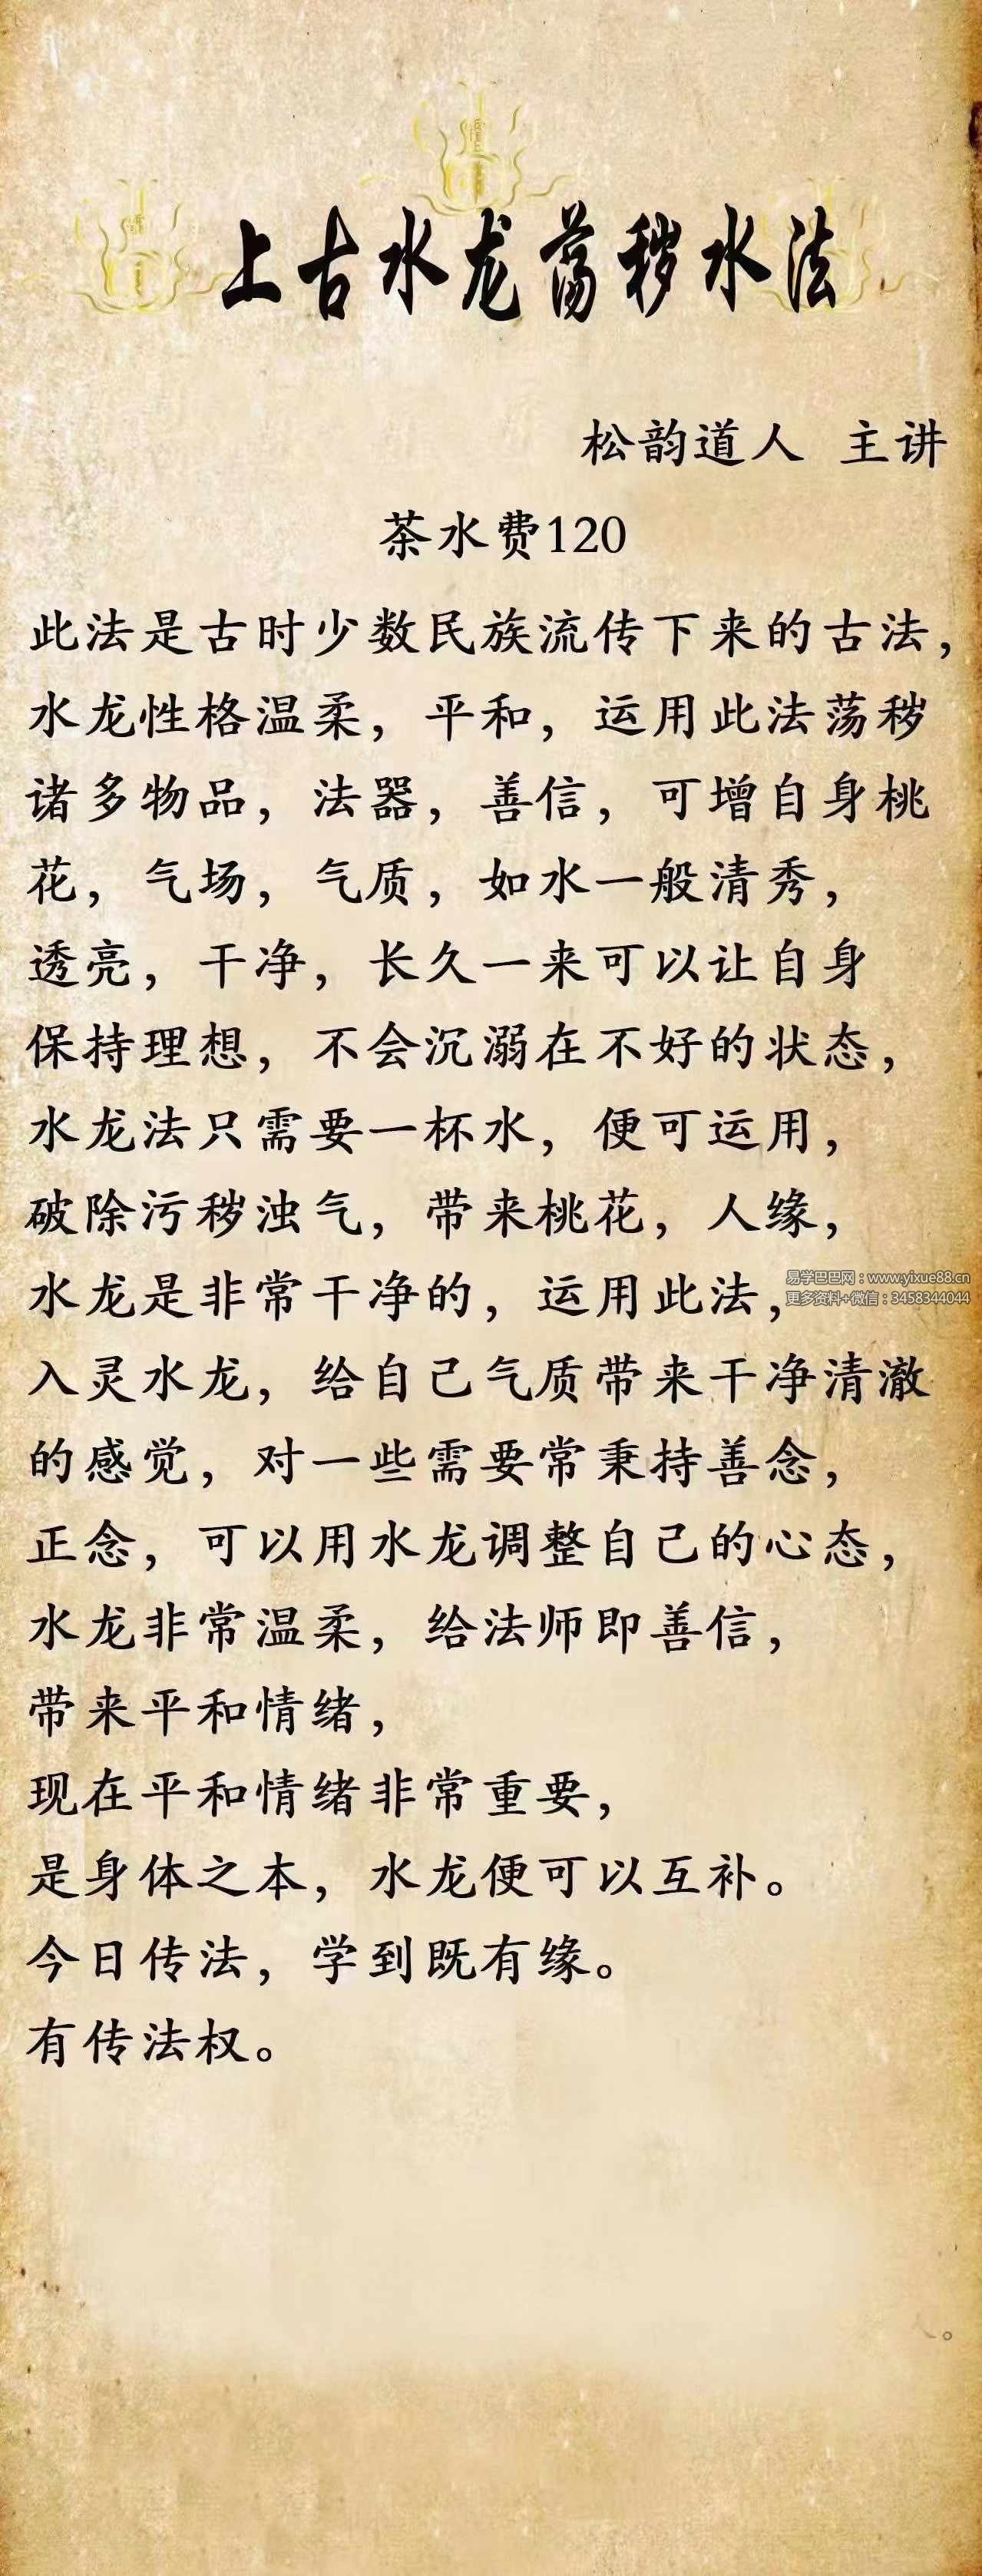 上古水龙荡秽水法
松韵道人 主讲
茶水费120
此法是古时少数民族流传下来的古法，
水龙性格温柔，平和，运用此法荡秽
诸多物品，法器，善信，可增自身桃
花，气场，气质，如水一般清秀，
透亮，干净，长久一来可以让自身
保持理想，不会沉溺在不好的状态，
水龙法只需要一杯水，便可运用，
破除污秽浊气，带来桃花，人缘，
水龙是非常干净的，运用此法，
易学巴巴网：www.yixue88.cn
更多资料+微信：3458344044
入灵水龙，给自己气质带来干净清澈
的感觉，对一些需要常秉持善念，
正念，可以用水龙调整自己的心态，
水龙非常温柔，给法师即善信，
带来平和情绪，
现在平和情绪非常重要，
是身体之本，水龙便可以互补。
今日传法，学到既有缘。
有传法权。